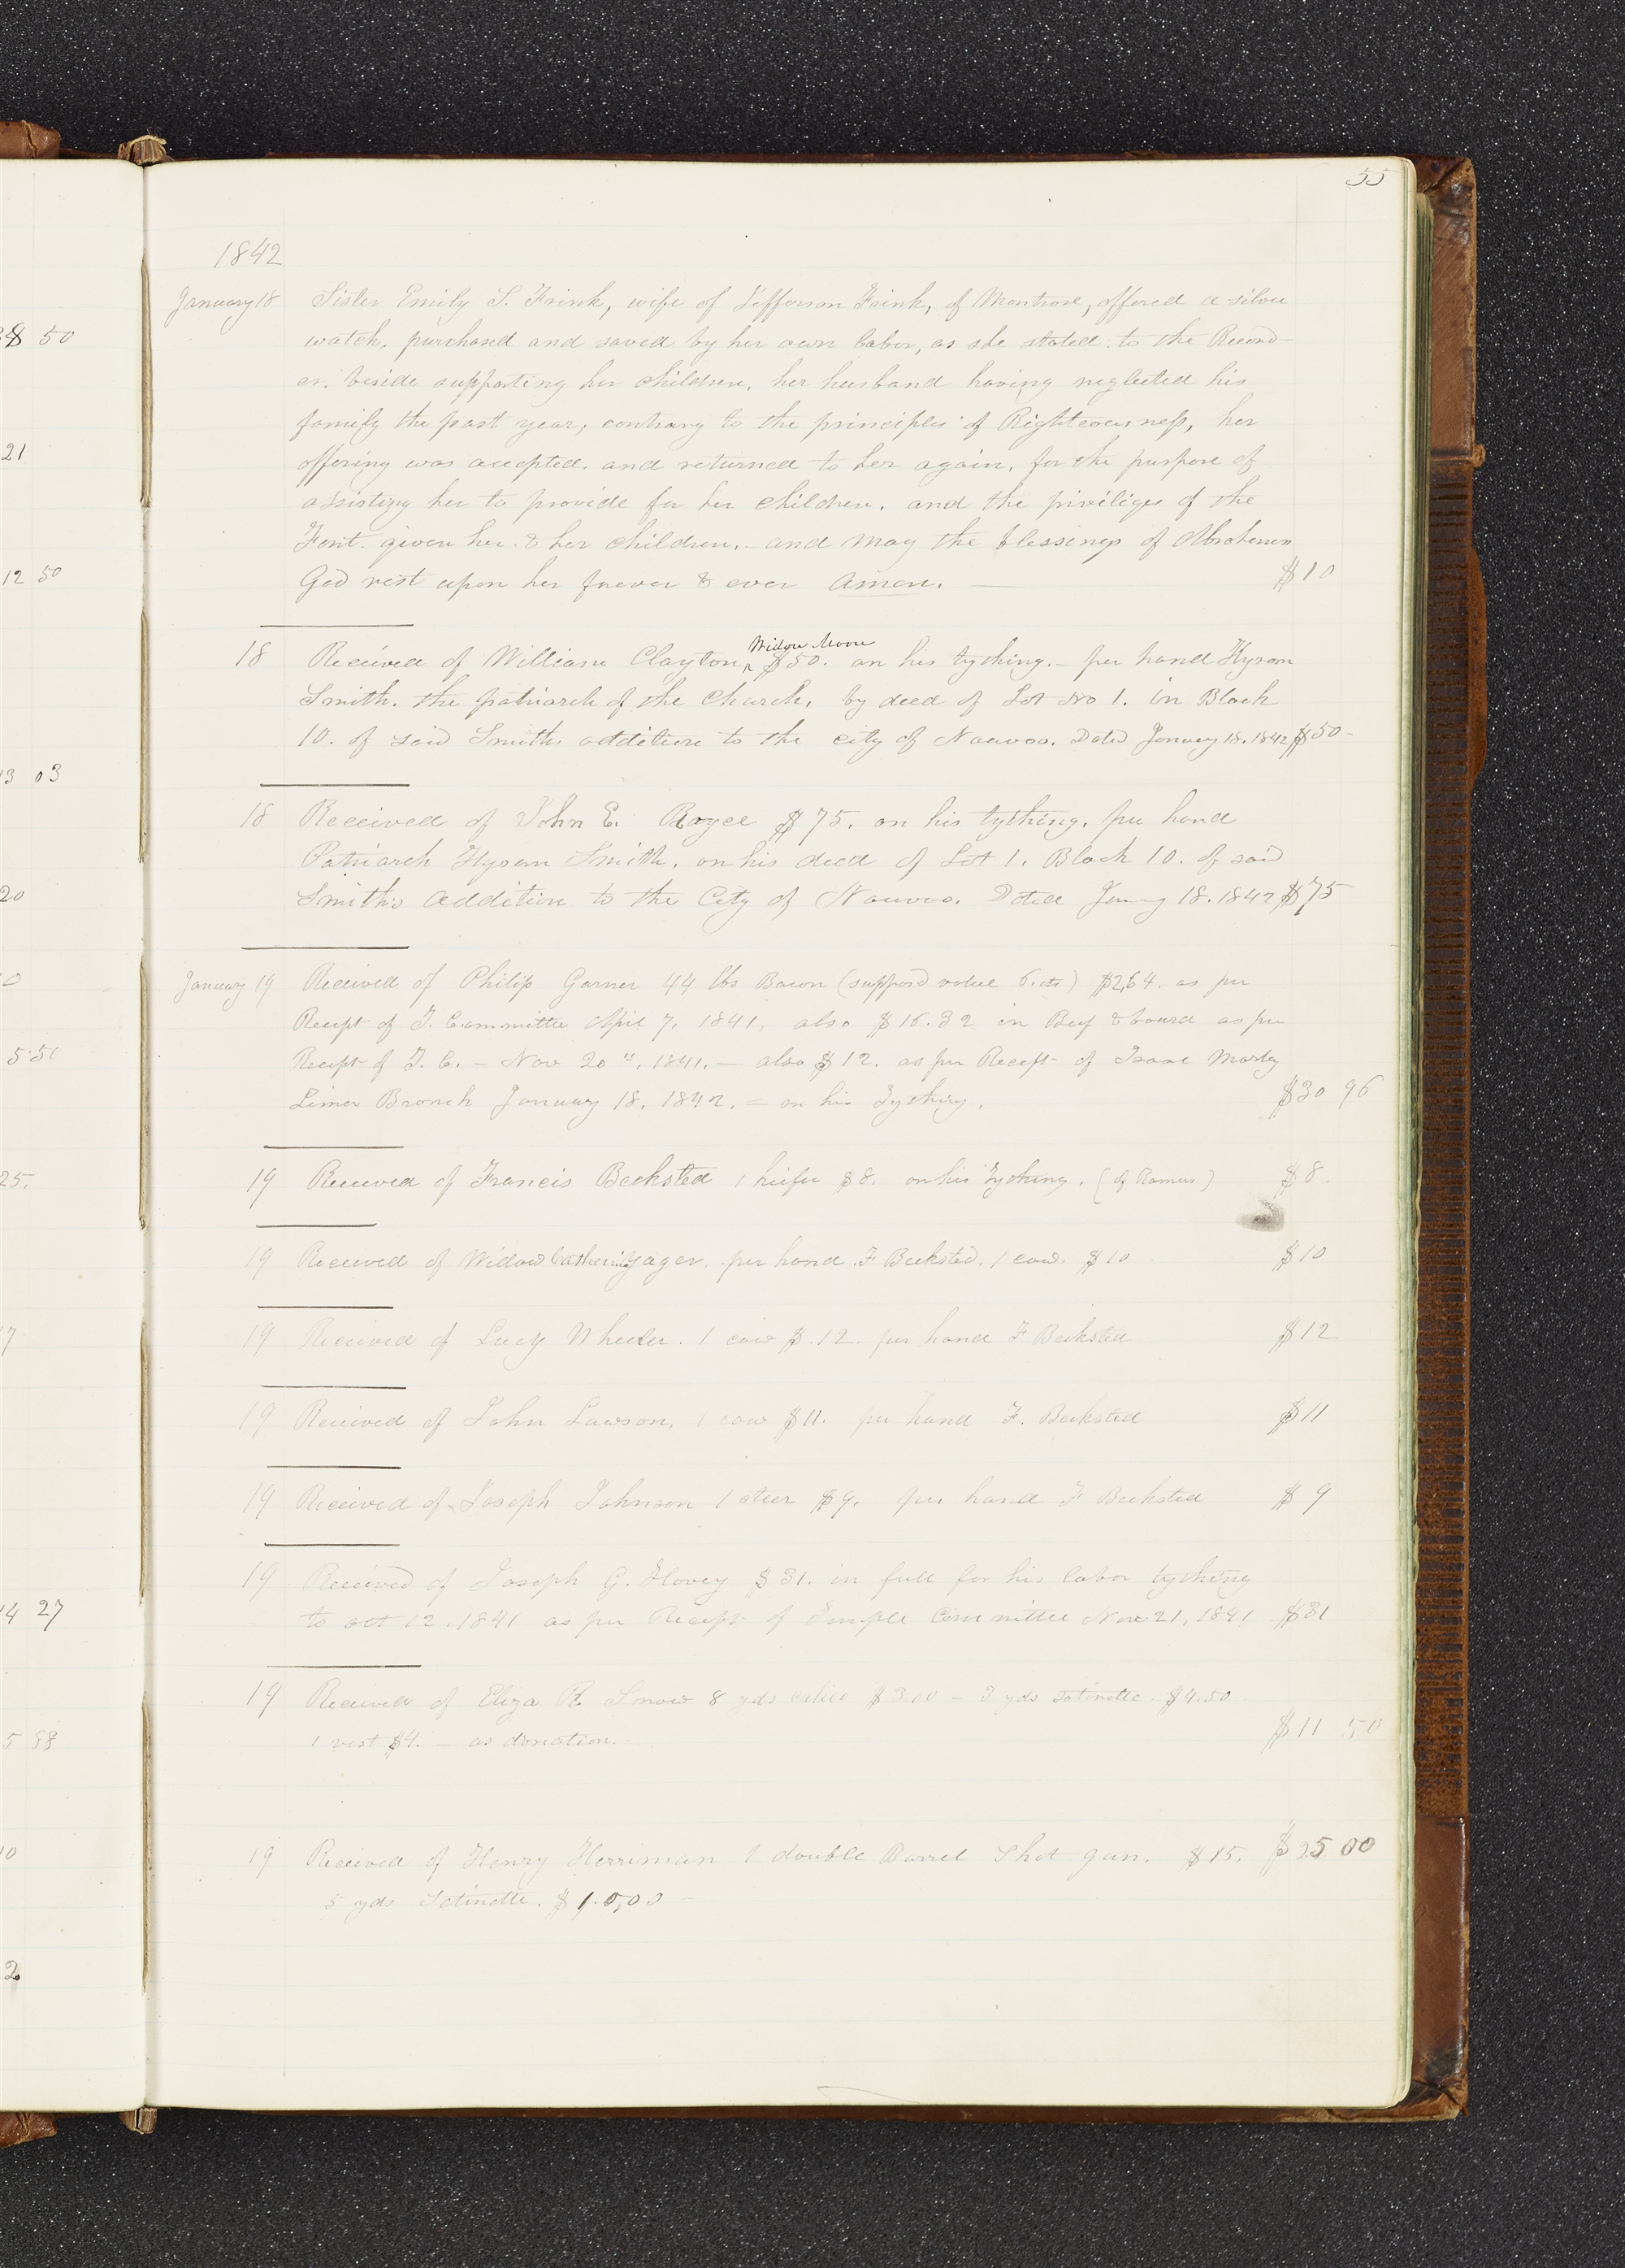 55
1842
January 18 Sister Emily S. Frink, wife of Jefferson Frink, of Montrose, offered a silver
watch, purchased and saved by her own labor, as she stated to the Record-
er. beside supporting her children, her husband having neglected his
family the past year, contrary to the principles of Righteousness, her
offering was accepted. and returned to her again, for the purpose of
assisting her to provide for her children. and the priviliges of the
Font. given her & her children, - and may the blessings of Abrahams
God rest upon her forever & ever Amen. — $10
18 Received of William Clayton, ^ Widow Moon $50. on his tything. - per hand Hyrom
Smith. the patriarch of the Church, by deed of Lot No 1. in Block
10. of said Smiths addition to the city of Nauvoo. Dated January 18. 1842 $50-
18 Received of John E. Royce $75. on his tything. per hand
Patriarch Hyrum Smith. on his deed of Lot 1. Block 10. of said
Smith's addition to the City of Nauvoo. Dated 18. 1842 $75
January 19 Received of Philip Garner 44 lbs Bacon (suppos'd value 6. cts) $2,64. as per
Receipt of T. Committee April 7. 1841, also $16.32 in Beef & board as per
Receipt of T. C. - Nov 20th. 1841. — also $12. as per Receipt of Isaac Morley
Lima Branch January 18. 1842. = on his Tything. $30 96
19 Received of Francis Becksted 1 heifer $8. on his Tything. (of Ramus) $8.
19 Received of Widow Catherine Yager. per hand F Becksted. 1 cow. $10 $10
19 Received of Lucy Wheeler. 1 cow $.12. per hand F Becksted $12
19 Received of John Lawson, 1 cow $11. per hand F. Becksted $11
19 Received of Joseph Johnson 1 steer $9. per hand F Becksted $9
19 Received of Joseph G. Hovey $31. in full for his labor tything
to oct 12. 1841 as per Receipt of Temple Committee Nov 21, 1841 $31
19 Received of Eliza R Snow 8 yds calico $3.00 - 3 yds satinette. $4.50
1 vest $4. - as donation. $11 50
19 Received of Henry Herriman 1 double Barrel Shot gun. $15. $25 00
5 yds Satinette. $10,00
50
21
12 50
13 03
20
0
5 51
25.
7
14 27
5 88
10
2